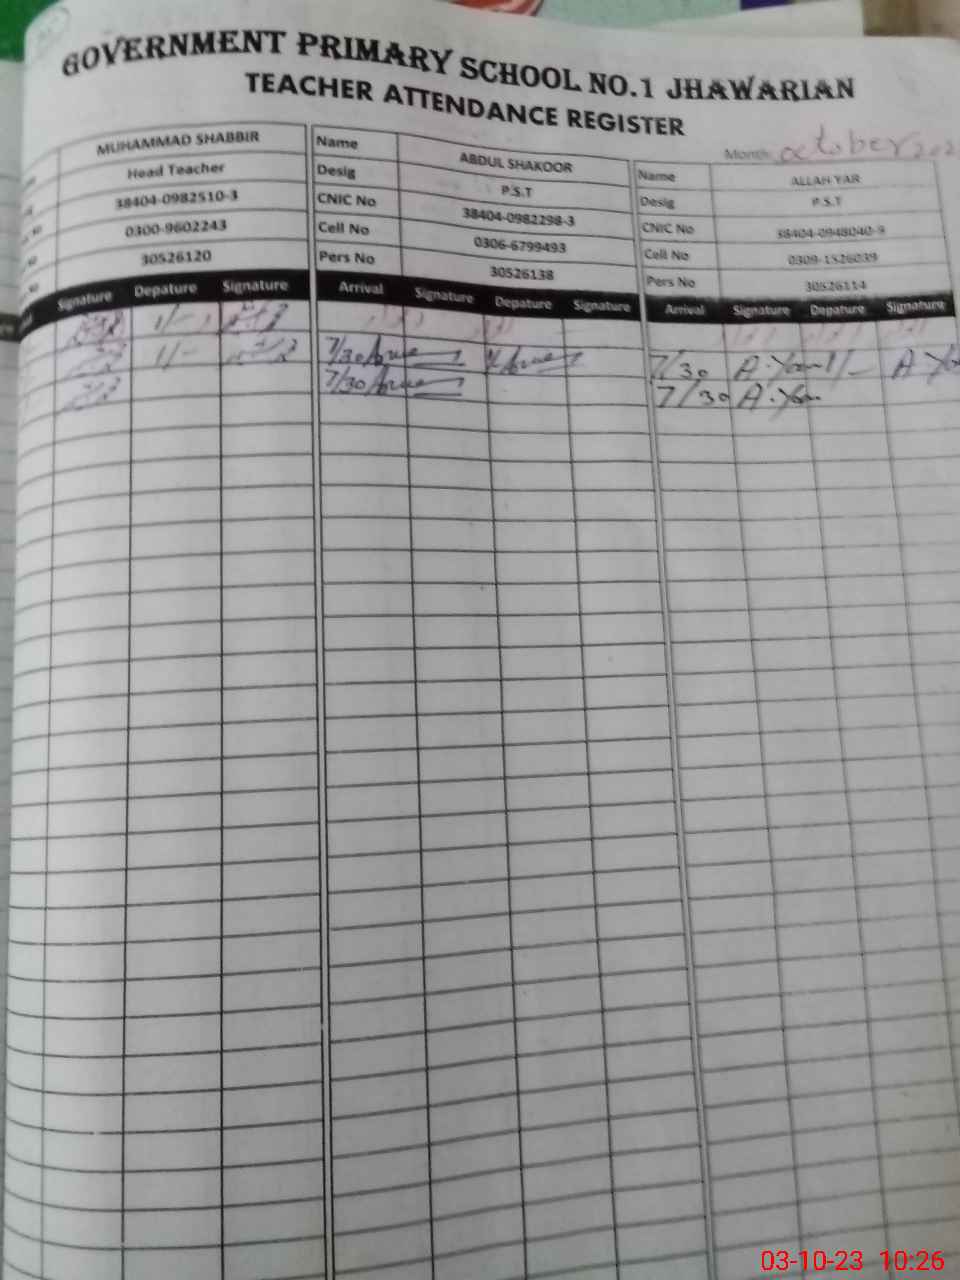 GOVERNMENT PRIMARY SCHOOL NO.1 JHAWARIAN
TEACHER ATTENDANCE REGISTER
Month: october
MUHAMMAD SHABBIR Name ABDUL SHAKOOR Name ALLAH YAR
Head Teacher Desig P.S.T Desig P.S.T
38404-0982510-3 CNIC No 38404-0982298-3 CNIC No 38404-0948040-9
0300-9602243 Cell No 0306-6799493 Cell No 0309-1526039
30526120 Pers No 30526138 Pers No 30526114
Signature Depature Signature Arrival Signature Depature Signature Arrival Signature Depature Signature
1/-
1/- 7/30 7/30 1/-
7/30 7/30
03-10-23 10:26